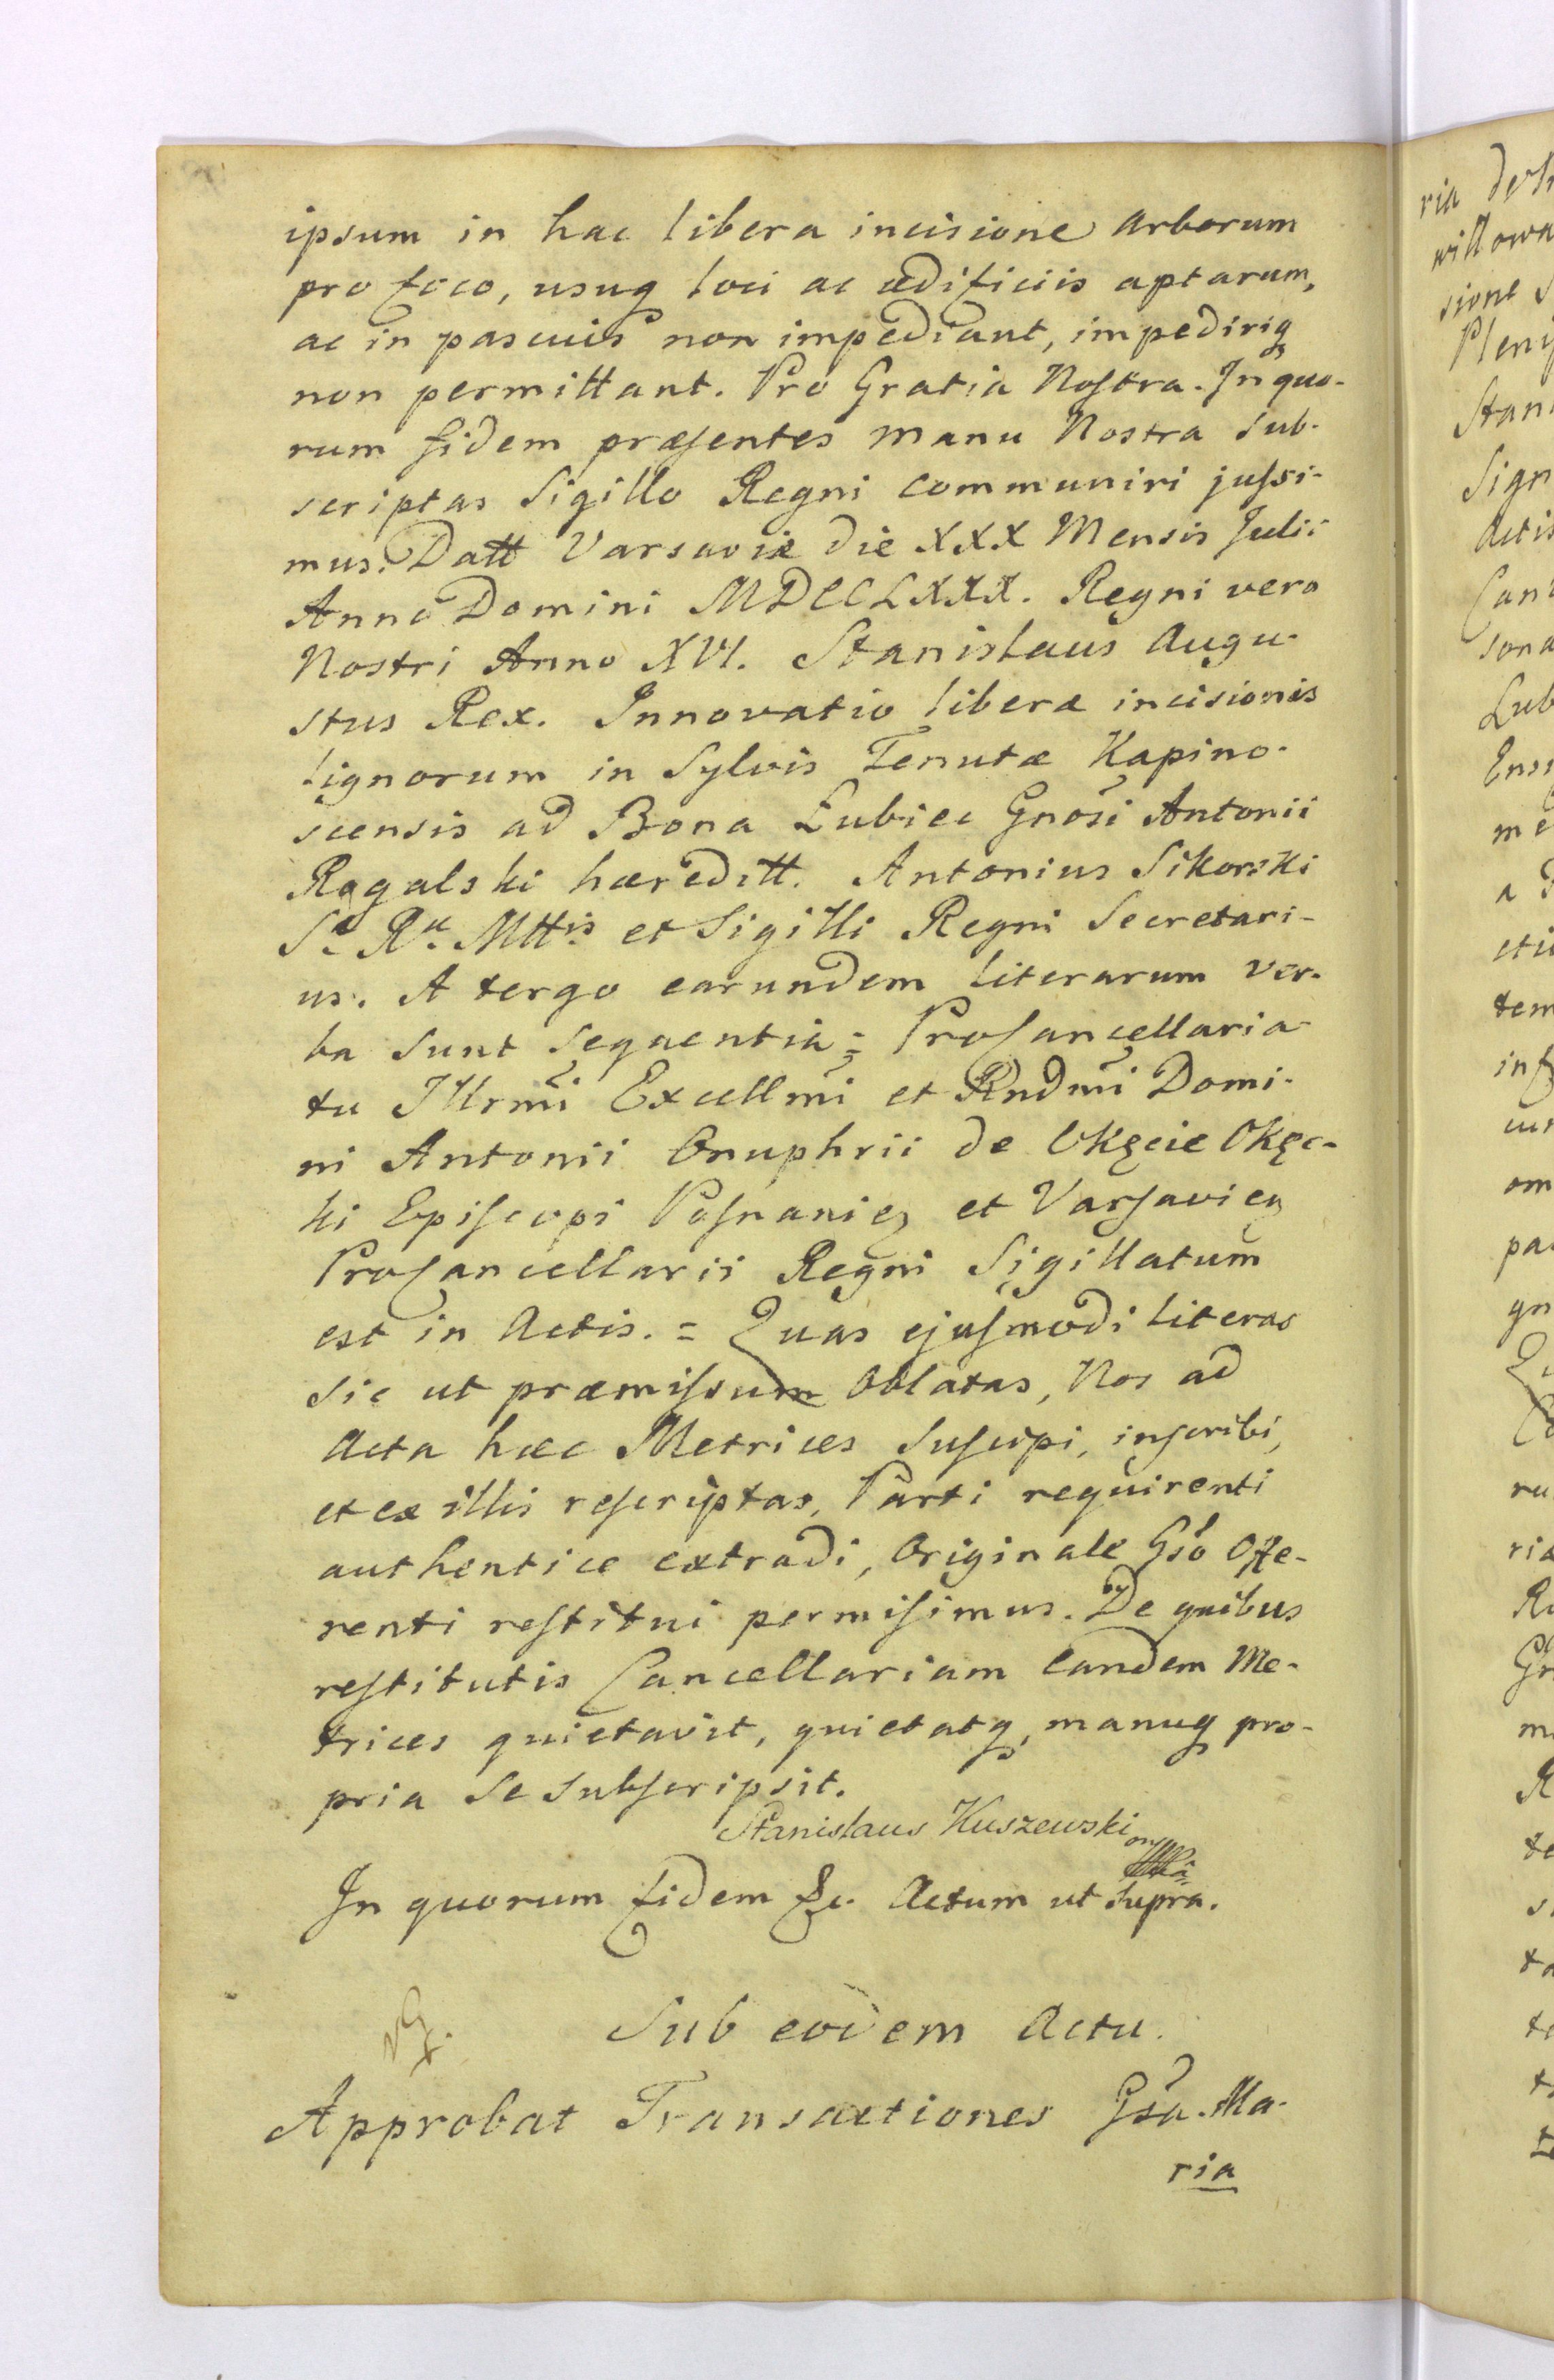 ipsum in hac libera incisione arborum
pro foco, usuq loci ac ædificiis aptarum,
ac in pascuis non impediant, impediriq
non permittant. Pro Gratia Noſtra. In quo-
rum fidem præſentes manu Nostra sub-
scriptas Sigillo Regni communiri juſsi-
mus. Datt Varsaviæ die XXX Mensis Julii
Anno Domini MDCCLXXX. Regni vero
Nostri Anno XVI. Stanislaus Augu-
stus Rex. Innovatio liberæ incisionis
lignorum in Sylvis Tenutæ Kapino-
scensis ad Bona Łubiec Gnosi Antonii
Rogalski hæreditt. Antonius Sikorski
Sæ Ræ Mttis et Sigilli Regni Secretari-
us. A tergo earundem literarum ver-
ba sunt sequentia = ProCancellaria-
tu Illrmi Excellmi et Rndmi Domi-
ni Antonii Onuphrii de Okęcie Okęc-
ki Epiſcopi Poſnanieȝ et Varſavieȝ
ProCancellarii Regni Sigillatum
est in Actis. = Quas ejuſmodi literas
sic ut præmiſsum Oblatas, Nos ad
Acta hæc Metrices Suſcipi, inſcribi,
et ex illis reſcriptas, Parti requirenti
authentice extradi, Originale Gso Offe-
renti reſtitui permiſimus. De quibus
reſtitutis Cancellariam eandem Me-
trices quietavit, quietatq, manuq pro-
pria se Subſcripsit.
Stanislaus Kuszewski
In quorum fidem &c. Actum ut supra.
Sub eodem Actu.
Approbat Transactiones Gsa. Ma-
ria